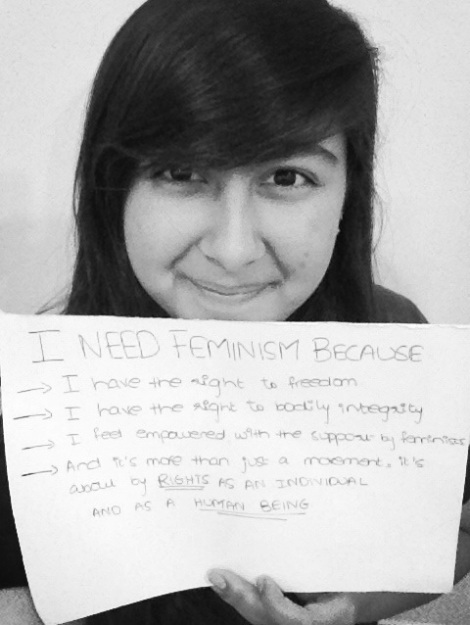 I NEED FEMINISM BECAUSE
→ I have the right to freedom
→ I have the right to bodily integrity
→ I feel empowered with the support by feminists
→ And it's more than just a movement, it's
about by RIGHTS AS AN INDIVIDUAL
AND AS A HUMAN BEING